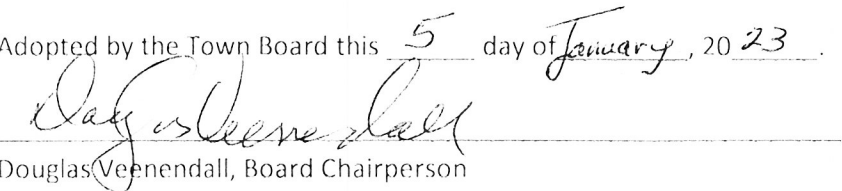 Adopted by the Town Board this 5 day of January, 2023.
Douglas Veenendall
Douglas Veenendall, Board Chairperson